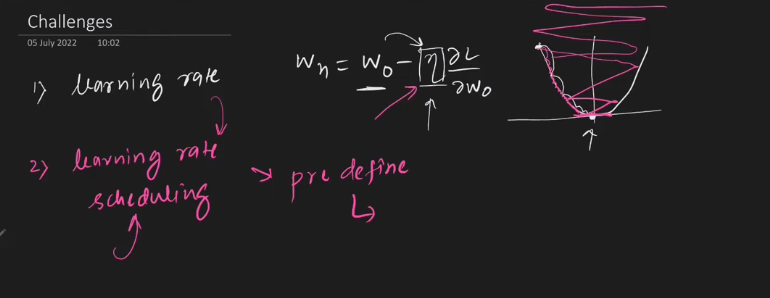 Challenges
05 July 2022 10:02
1) learning rate
Wn = W0 - η ∂L/∂W0
2) learning rate
scheduling
pre define